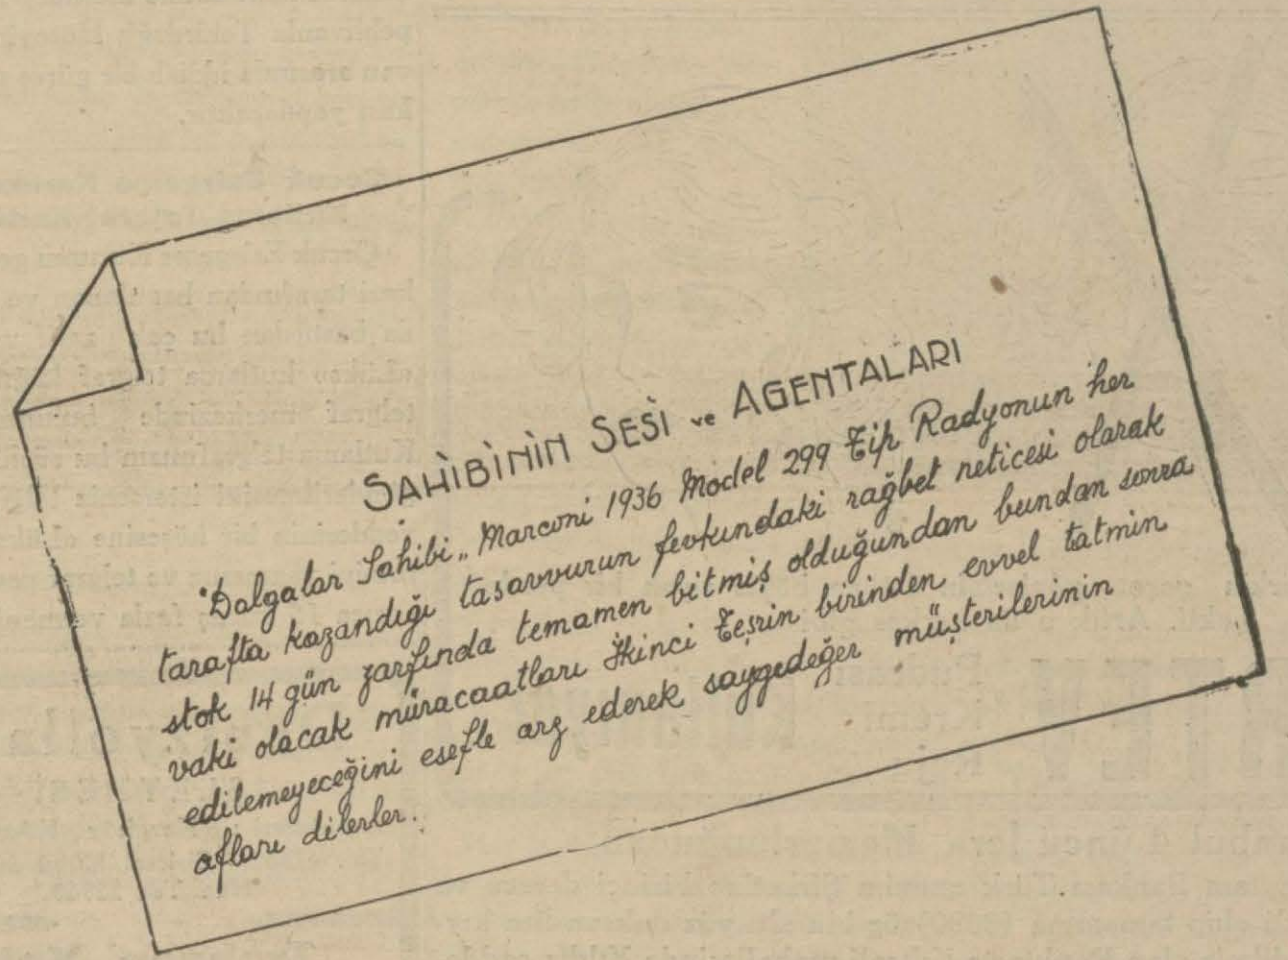 SAHİBİNİN SESİ ve AGENTALARI
"Dalgalar Sahibi„ Marconi 1936 Model 299 Tip Radyonun her
tarafta kazandığı tasavvurun fevkındaki rağbet neticesi olarak
stok 14 gün zarfında temamen bitmiş olduğundan bundan sonra
vaki olacak müracaatları İkinci Teşrin birinden evvel tatmin
edilemeyeceğini esefle arz ederek saygıdeğer müşterilerinin
afları dilerler.